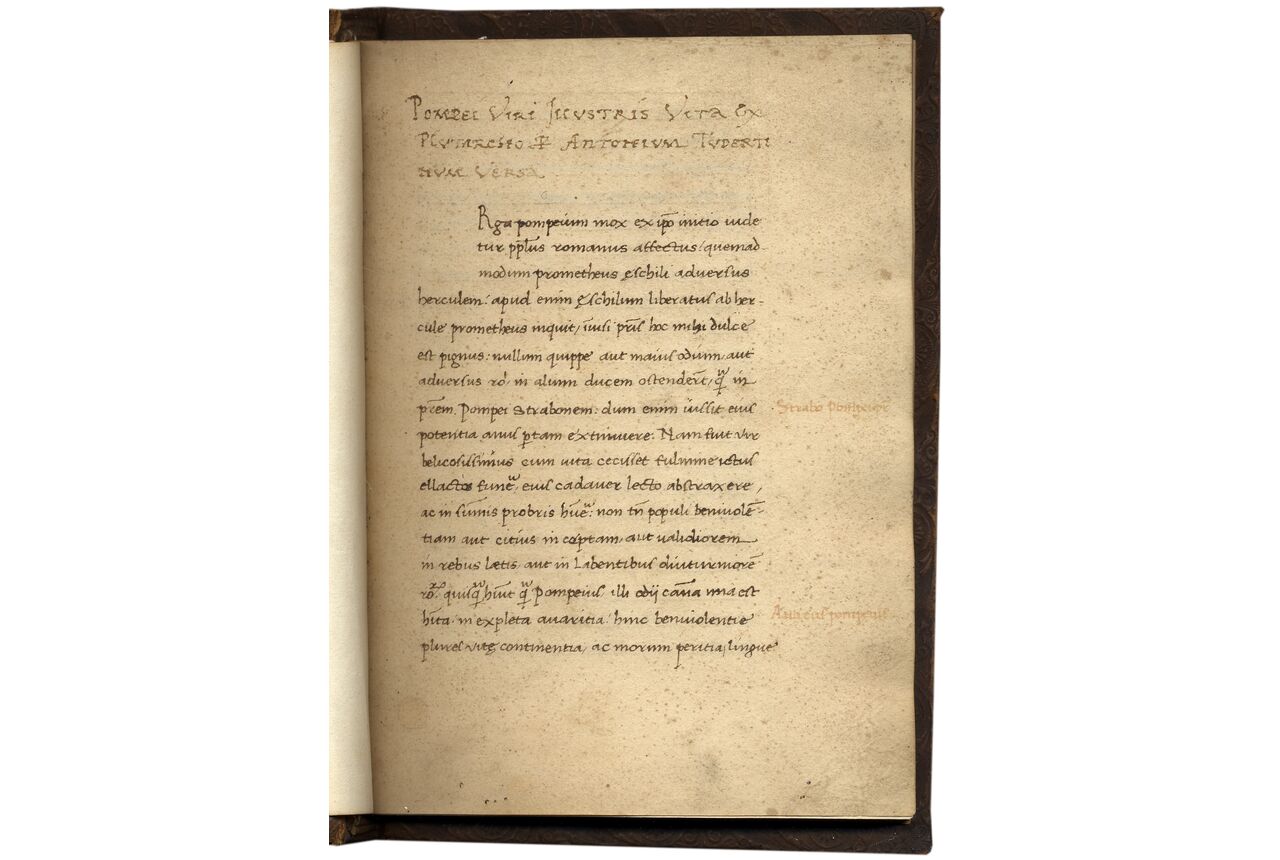 POMPEI VIRI ILLUSTRIS VITA EX
PLUTARCHO P ANTONIUM TUDERTI
NUM VERSA
Rga pompeium mox ex ip̄o initio uide
tur pp̄lus romanus affectus: quemad
modum prometheus ęschili aduersus
herculem: apud enim ęschilum liberatus ab her-
cule prometheus inquit, pr̄is hoc mihi dulce
est pignus: nullum quippe aut maius odium, aut
aduersus ro. in alium ducem ostender̄t, q̄ in
pr̄em Pompei Strabonem: dum enim iussit eius
Strabo Pompeius
potentia armis extimuere. Nam fuit uir
belicosissimus cum uita cecisset fulmine ictus
ellactos eius cadauer lecto abstraxere,
ac in sum̄is probris non tn̄ populi beniuolē-
tiam aut citius in cœptam, aut ualidiorem
in rebus lætis, aut in Labentibus diuturniorē
ro. q̄ Pompeius, illi odij cauſa una est
in expleta auaritia: hinc beniuolentie
Auarus pompeius
plures uitę continentia, ac morum peritia, lingue